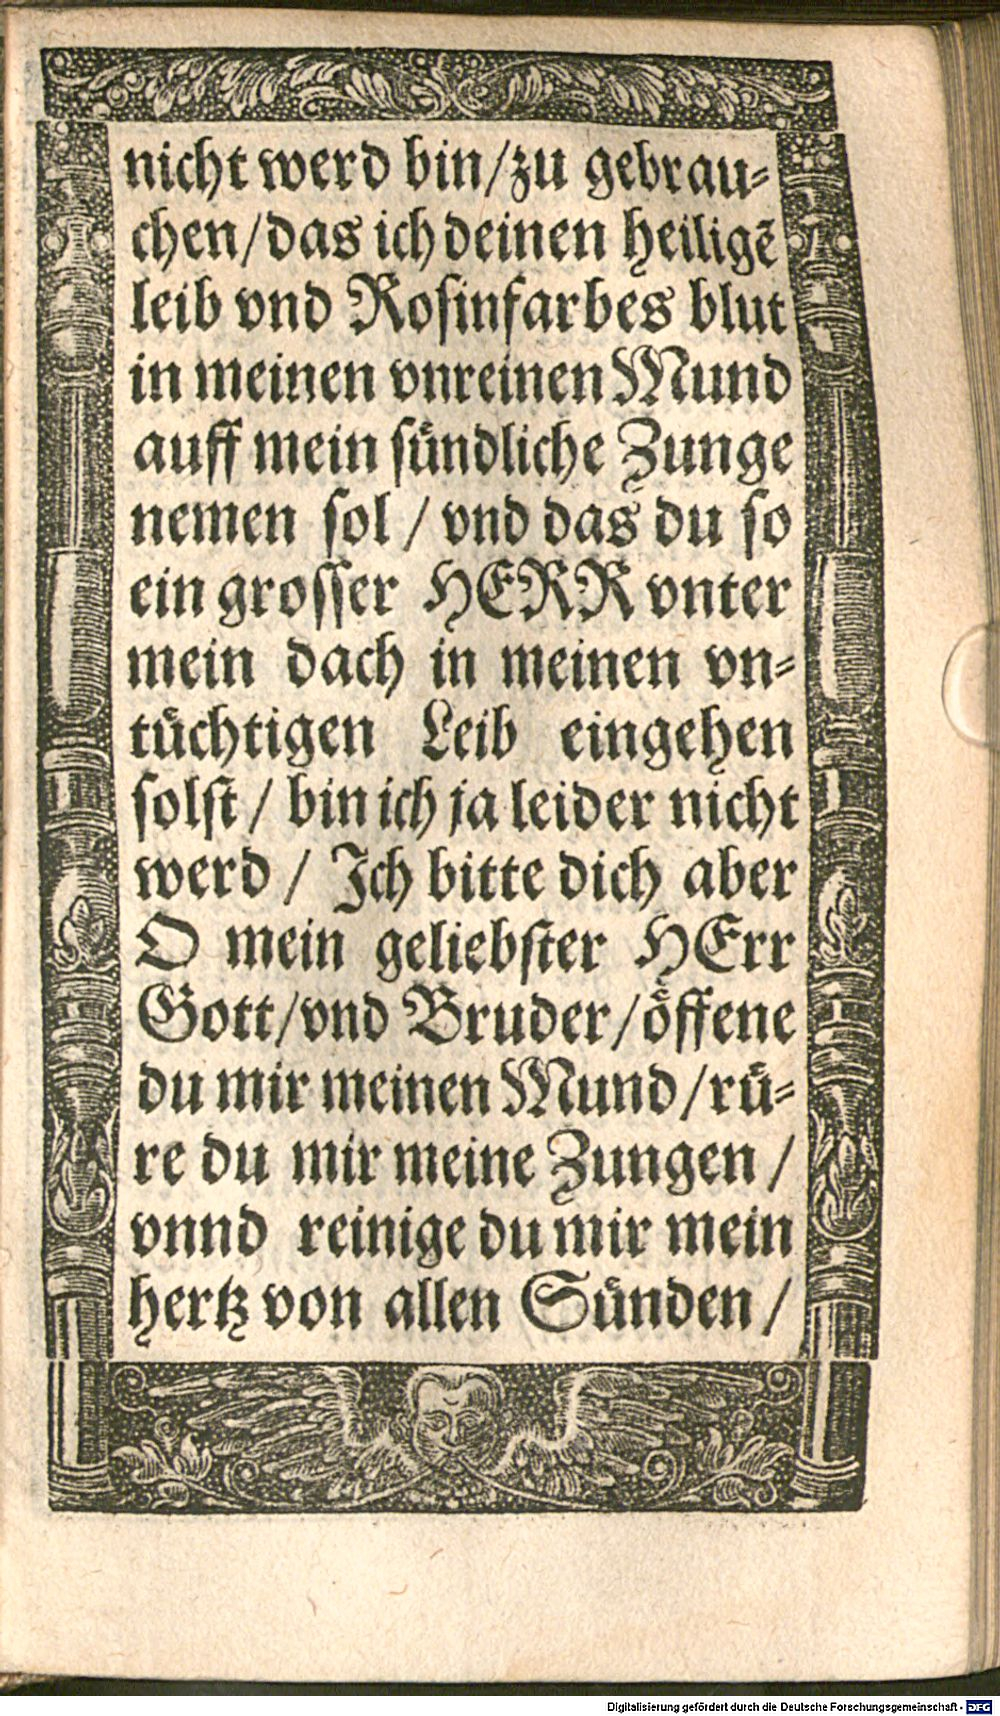 nicht werd bin/zu gebrau⸗
chen/das ich deinen heiligẽ
leib vnd Roſinfarbes blut
in meinen vnreinen Mund
auff mein ſuͤndliche Zunge
nemen ſol / vnd das du ſo
ein groſſer HERR vnter
mein dach in meinen vn⸗
tuͤchtigen Leib eingehen
ſolſt / bin ich ja leider nicht
werd / Ich bitte dich aber
O mein geliebſter HErr
Gott/vnd Bruder/oͤffene
du mir meinen Mund/ruͤ⸗
re du mir meine Zungen /
vnnd reinige du mir mein
hertz von allen Suͤnden /
Digitalisierung gefördert durch die Deutsche Forschungsgemeinschaft - DFG